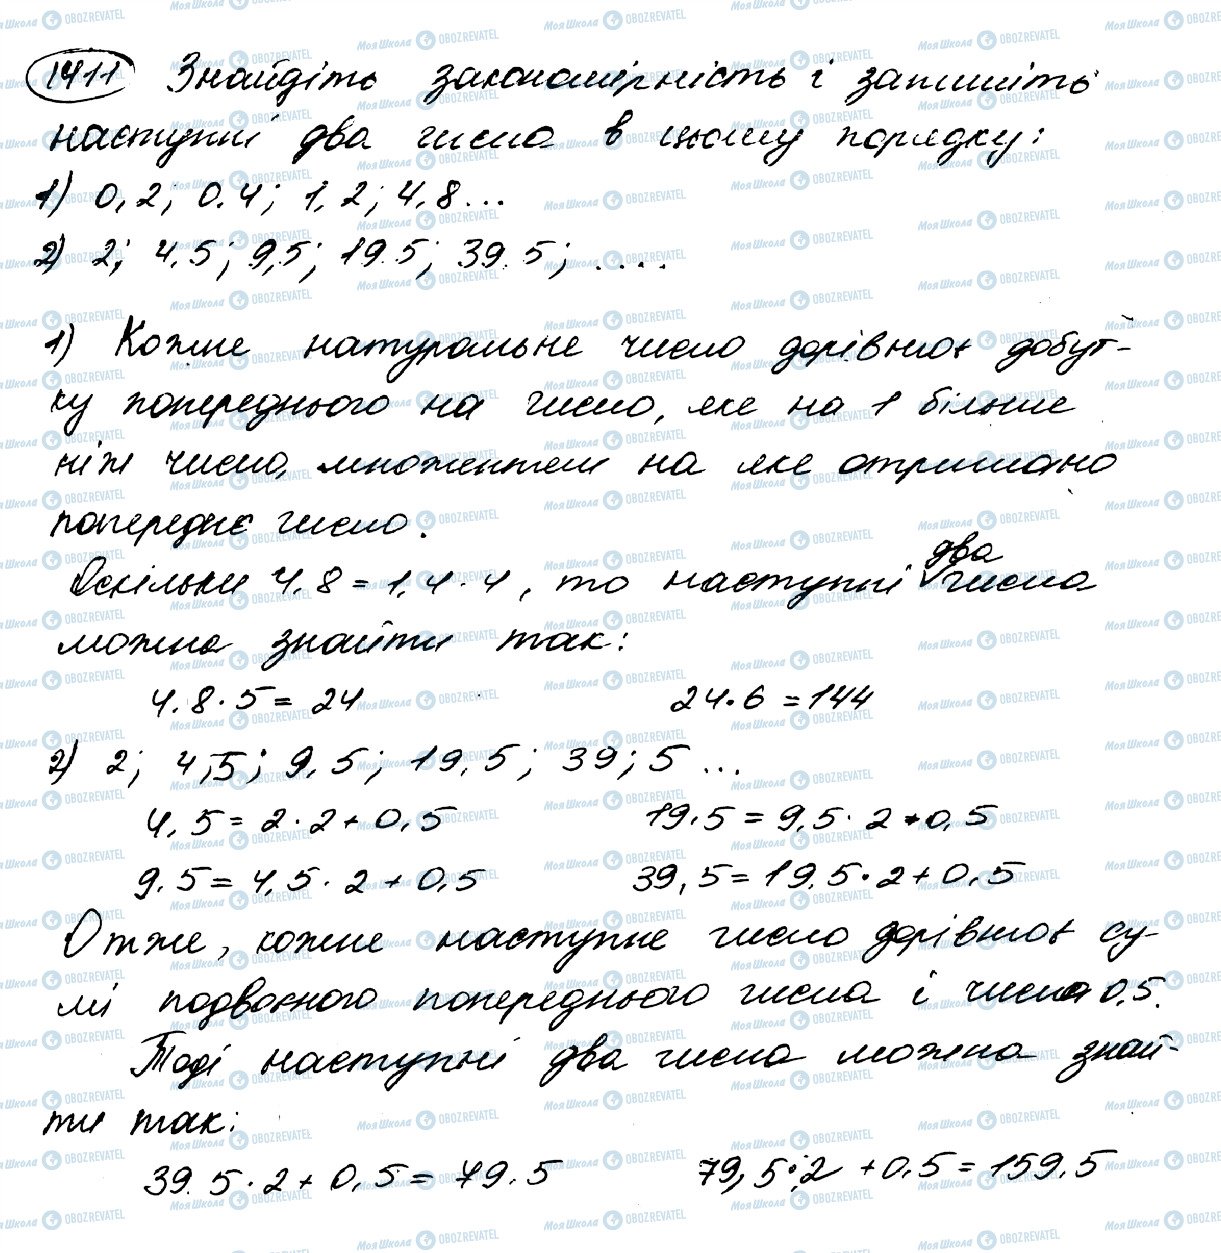 1411 Знайдіть закономірність і запишіть
наступні два числа в цьому порядку:
1) 0,2; 0.4; 1,2; 4,8...
2) 2; 4,5; 9,5; 19.5; 39.5; ....
1) Кожне натуральне число дорівнює добут-
ку попереднього на число, яке на 1 більше
ніж число, множенням на яке отримано
попереднє число.
Оскільки 4,8 = 1,4 · 4, то наступні два числа
можна знайти так:
4.8 · 5 = 24 24 · 6 = 144
2) 2; 4,5; 9,5; 19,5; 39;5 ...
4,5 = 2 · 2 + 0,5 19,5 = 9,5 · 2 + 0,5
9.5 = 4,5 · 2 + 0,5 39,5 = 19,5 · 2 + 0,5
Отже, кожне наступне число дорівнює су-
мі подвоєного попереднього числа і числа 0,5.
Тоді наступні два числа можна знай-
ти так:
39.5 · 2 + 0,5 = 79.5 79,5 · 2 + 0,5 = 159,5
МояШкола OBOZREVATEL